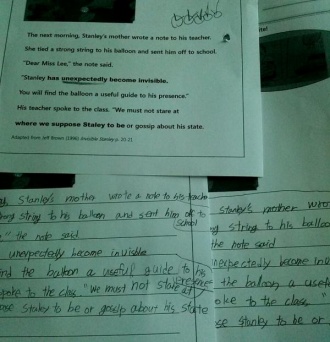 The next morning, Stanley's mother wrote a note to his teacher.
She tied a strong string to his balloon and sent him off to school.
"Dear Miss Lee," the note said.
"Stanley has unexpectedly become invisible.
You will find the balloon a useful guide to his presence."
His teacher spoke to the class. "We must not stare at
where we suppose Staley to be or gossip about his state.
Adapted from Jeff Brown (1996) Invisible Stanley p. 20-21
Stanley's mother wrote a note to his teache
string to his balloon and sent him off to
school
" the note said
unexpectedly become invisible
the balloon a useful guide to his
presence
spoke to the class. "We must not stare at
Staley to be or gossip about his state
Stanley's mother wro
string to his balloo
the note said
become inv
the balloon a usef
oke to the class "
se Stanley to be or